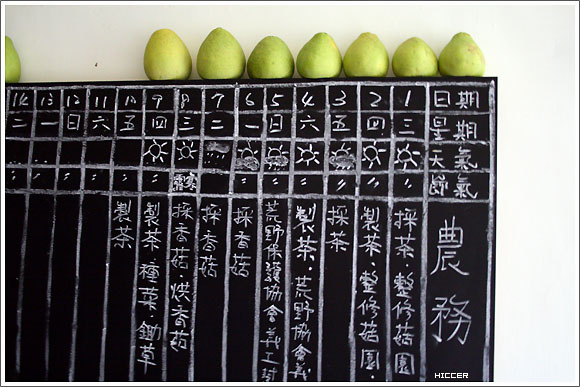 日期
1 2 3 4 5 6 7 8 9 10 11 12 13 14
星期
三 四 五 六 日 一 二 三 四 五 六 日 一 二
天氣
節氣
寒露
農務
採茶 整修菇園
製茶·整修菇園·
採茶
製茶·荒野協會義
荒野保護協會義工
採香菇
採香菇
採香菇 烘香菇
製茶·種菜·鋤草
製茶
HICCER